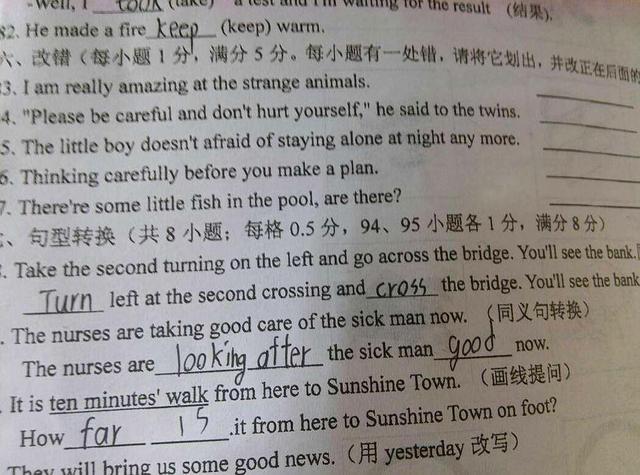 -Well, I took (take) a test and I'm waiting for the result (结果).
82. He made a fire keep (keep) warm.
六、改错（每小题 1 分，满分 5 分。每小题有一处错，请将它划出，并改正在后面的
3. I am really amazing at the strange animals.
4. "Please be careful and don't hurt yourself," he said to the twins.
5. The little boy doesn't afraid of staying alone at night any more.
6. Thinking carefully before you make a plan.
7. There're some little fish in the pool, are there?
、句型转换（共 8 小题；每格 0.5 分，94、95 小题各 1 分，满分 8 分）
. Take the second turning on the left and go across the bridge. You'll see the bank.
Turn left at the second crossing and cross the bridge. You'll see the bank
. The nurses are taking good care of the sick man now. （同义句转换）
The nurses are looking after the sick man good now.
. It is ten minutes' walk from here to Sunshine Town. （画线提问）
How far is .it from here to Sunshine Town on foot?
They will bring us some good news.（用 yesterday 改写）